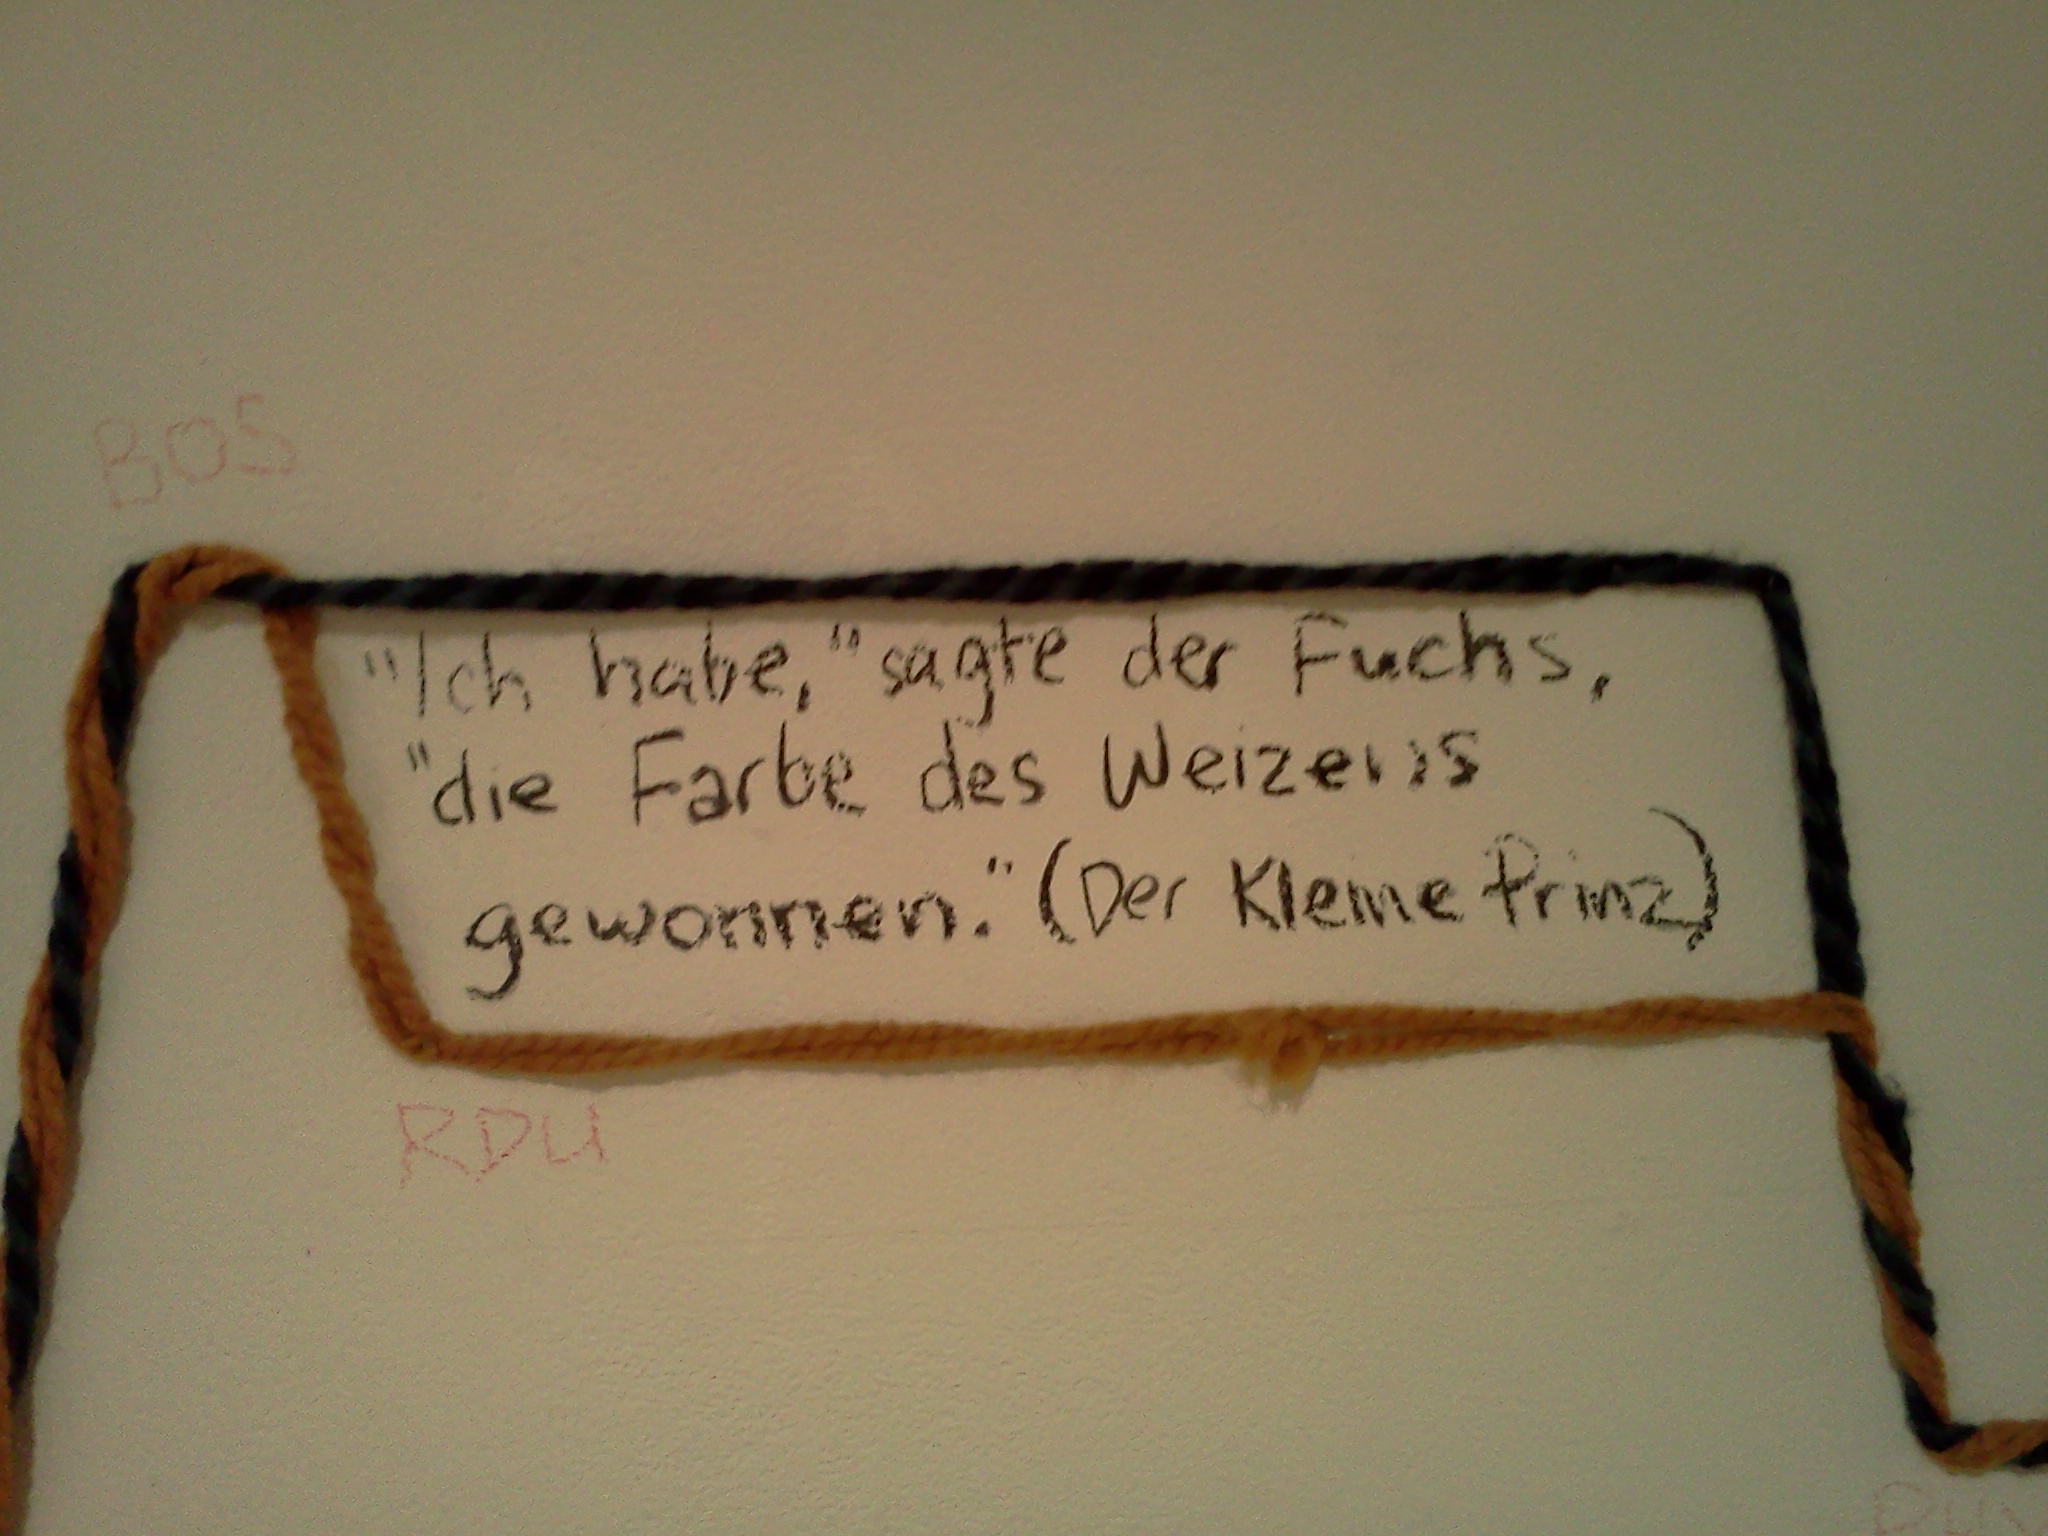 BOS
"Ich habe," sagte der Fuchs,
"die Farbe des Weizens
gewonnen." (Der Kleine Prinz)
RDU